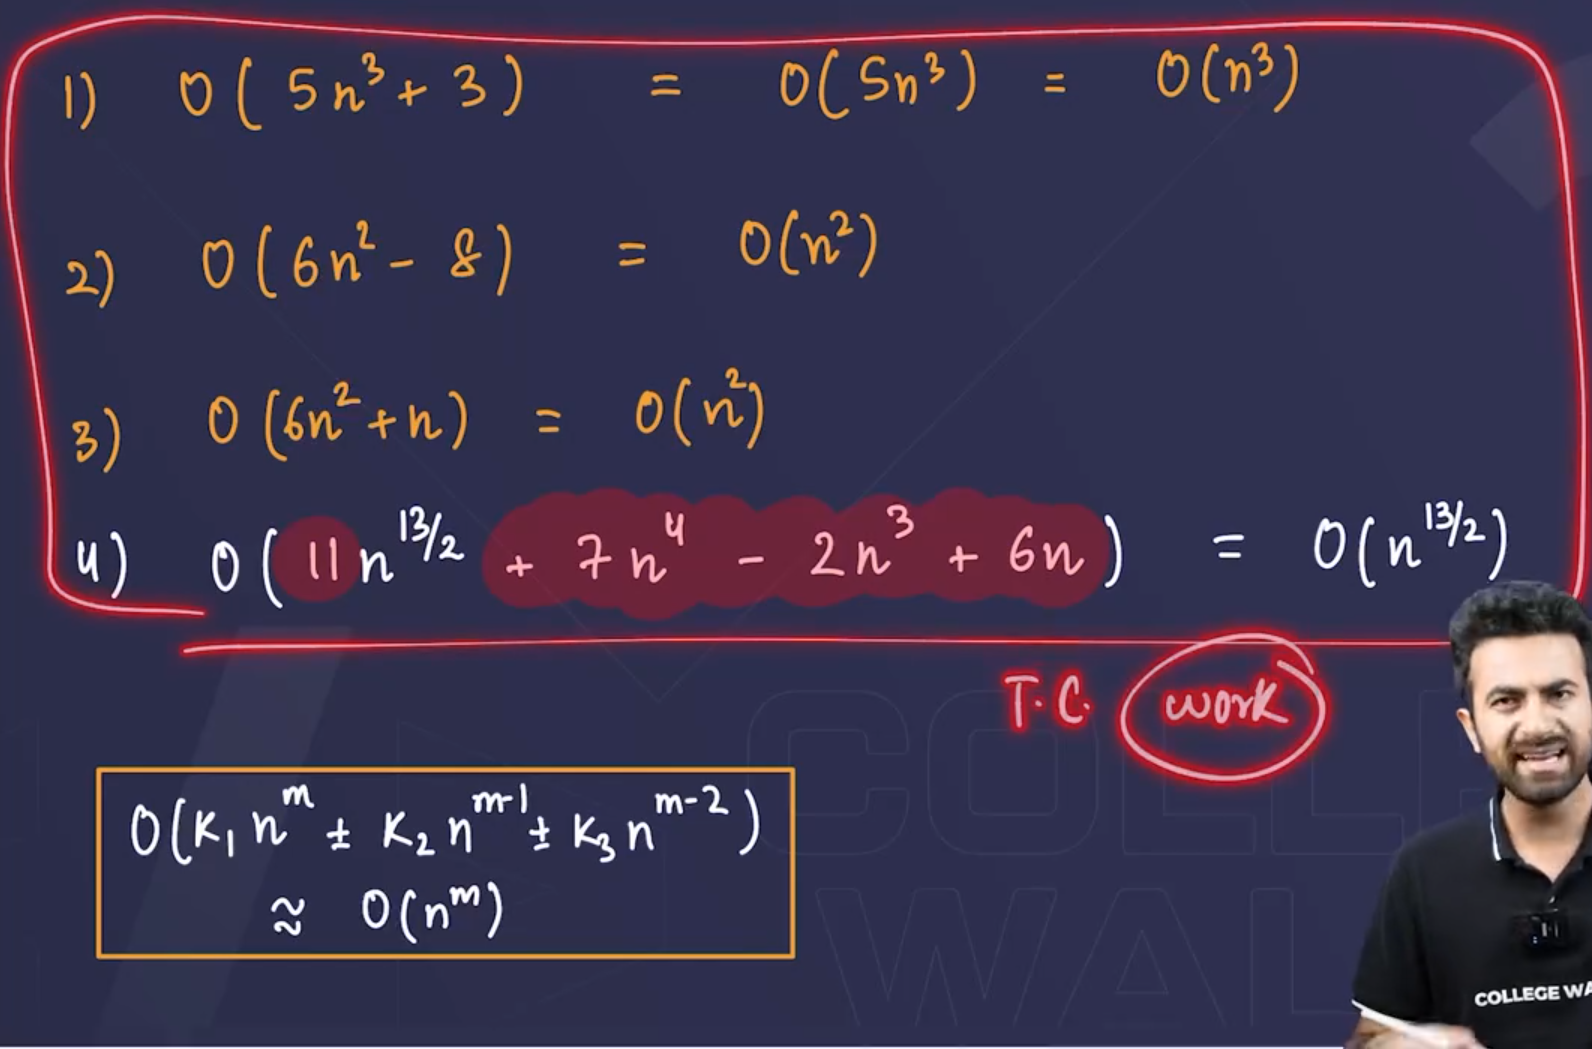 1) O(5n³ + 3) = O(5n³) = O(n³)
2) O(6n² - 8) = O(n²)
3) O(6n² + n) = O(n²)
4) O(11n^13/2 + 7n⁴ - 2n³ + 6n) = O(n^13/2)
T.C. work
O(K₁n^m ± K₂n^m-1 ± K₃n^m-2)
≈ O(n^m)
COLLEGE WA